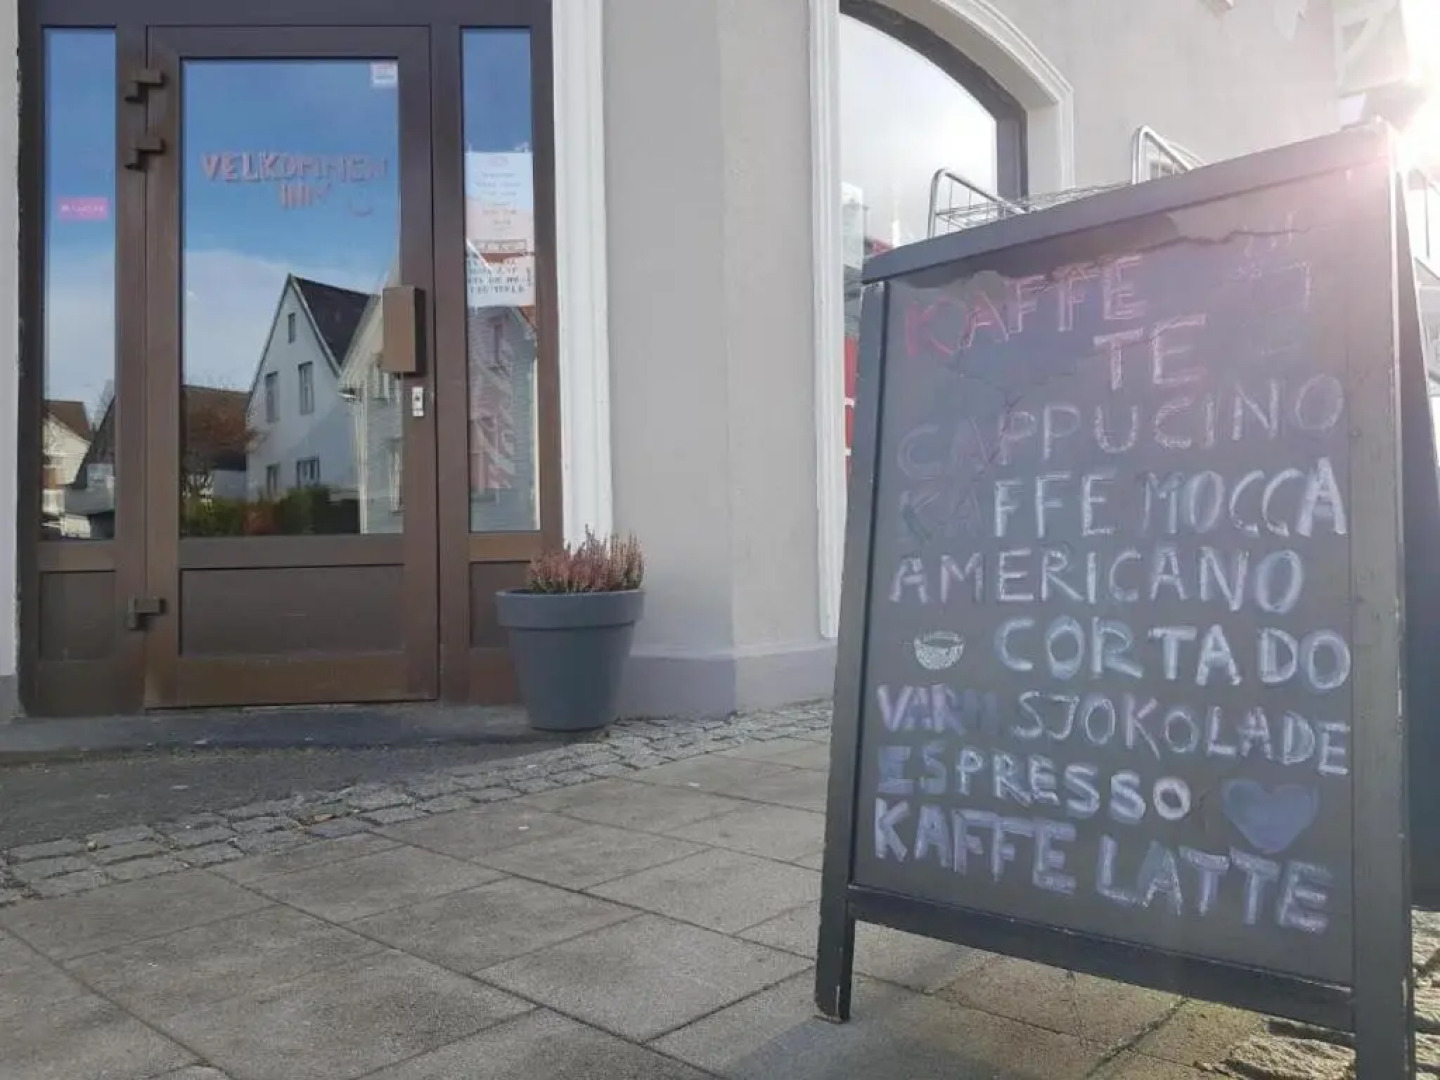 VELKOMMEN
INN
KAFFE
TE
CAPPUCINO
KAFFE MOCCA
AMERICANO
CORTADO
VARM SJOKOLADE
ESPRESSO
KAFFE LATTE